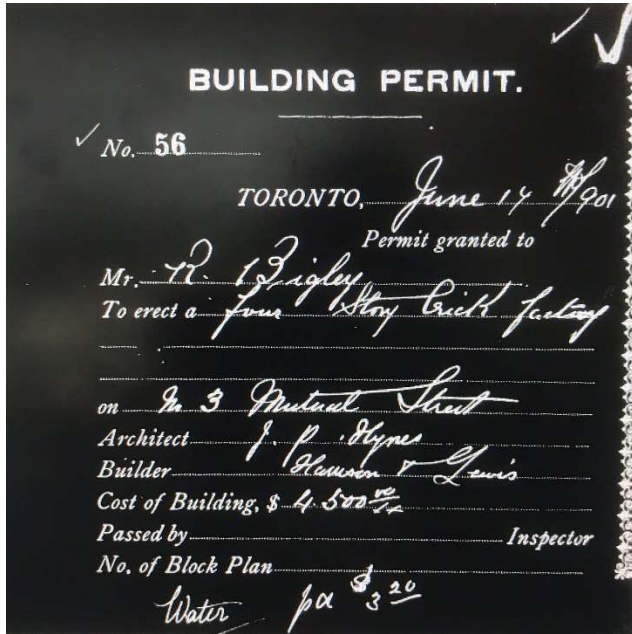 BUILDING PERMIT.
No. 56
TORONTO, June 14 1901
Permit granted to
Mr. R. Bigley
To erect a four Story brick factory
on No 3 Mutual Street
Architect J. P. Hynes
Builder Harrison & Lewis
Cost of Building, $ 4500 00/xx
Passed by Inspector
No. of Block Plan
Water pd $3 20